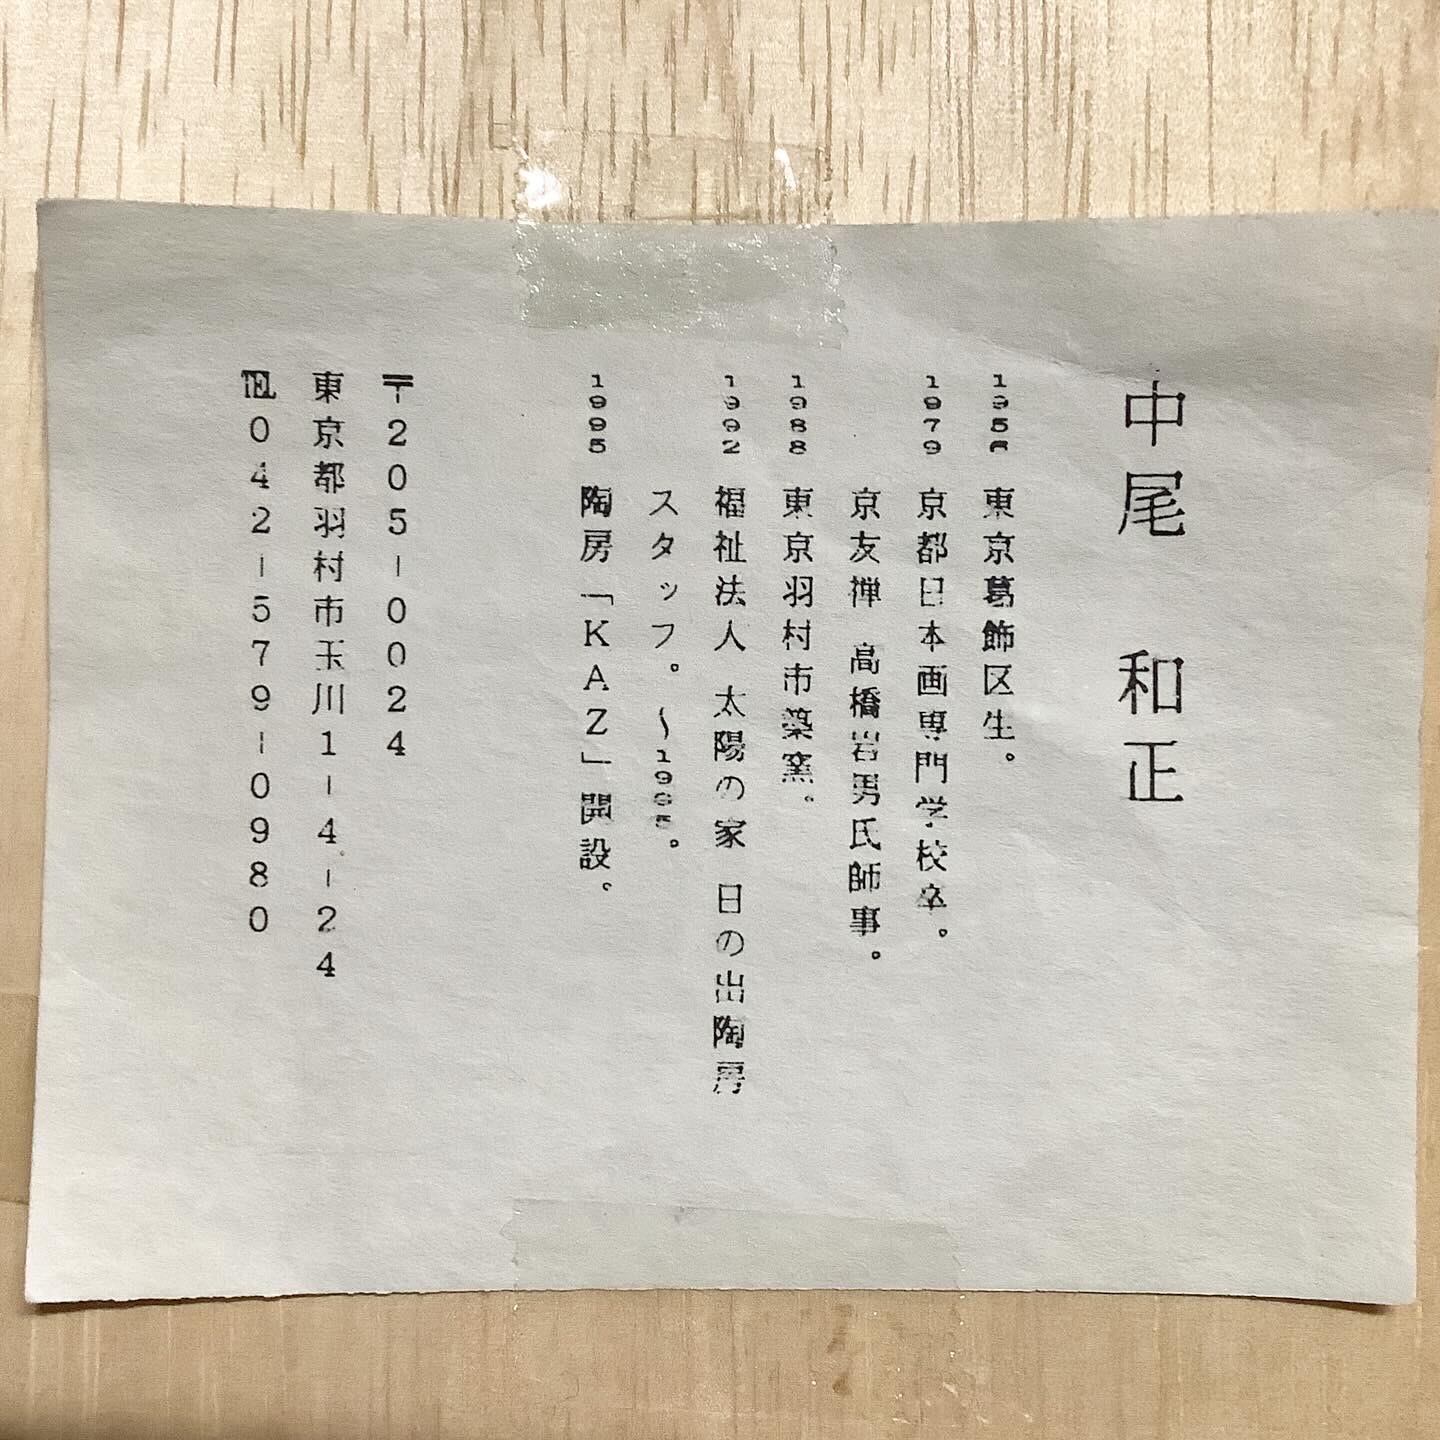 中尾 和正
1956 東京葛飾区生。
1979 京都日本画専門学校卒。
京友禅 高橋岩男氏師事。
1988 東京羽村市築窯。
1992 福祉法人 太陽の家 日の出陶房
スタッフ。～1995。
1995 陶房「KAZ」開設。
〒205-0024
東京都羽村市玉川1-4-24
℡042-579-0980